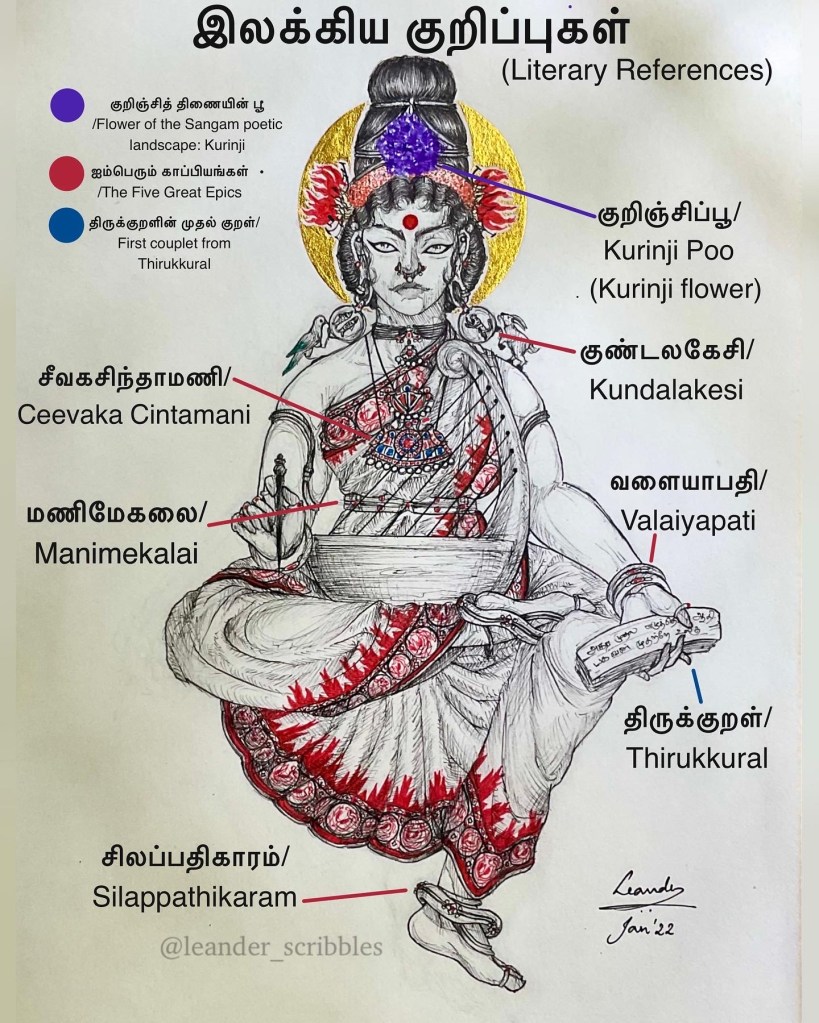 இலக்கிய குறிப்புகள்
(Literary References)
குறிஞ்சித் திணையின் பூ
/Flower of the Sangam poetic
landscape: Kurinji
ஐம்பெரும் காப்பியங்கள்
/The Five Great Epics
திருக்குறளின் முதல் குறள்/
First couplet from
Thirukkural
குறிஞ்சிப்பூ/
Kurinji Poo
(Kurinji flower)
குண்டலகேசி/
Kundalakesi
சீவகசிந்தாமணி/
Ceevaka Cintamani
மணிமேகலை/
Manimekalai
வளையாபதி/
Valaiyapati
அகர முதல எழுத்தெல்லாம் ஆதி
திருக்குறள்/
Thirukkural
சிலப்பதிகாரம்/
Silappathikaram
Leander
Jan'22
@leander_scribbles